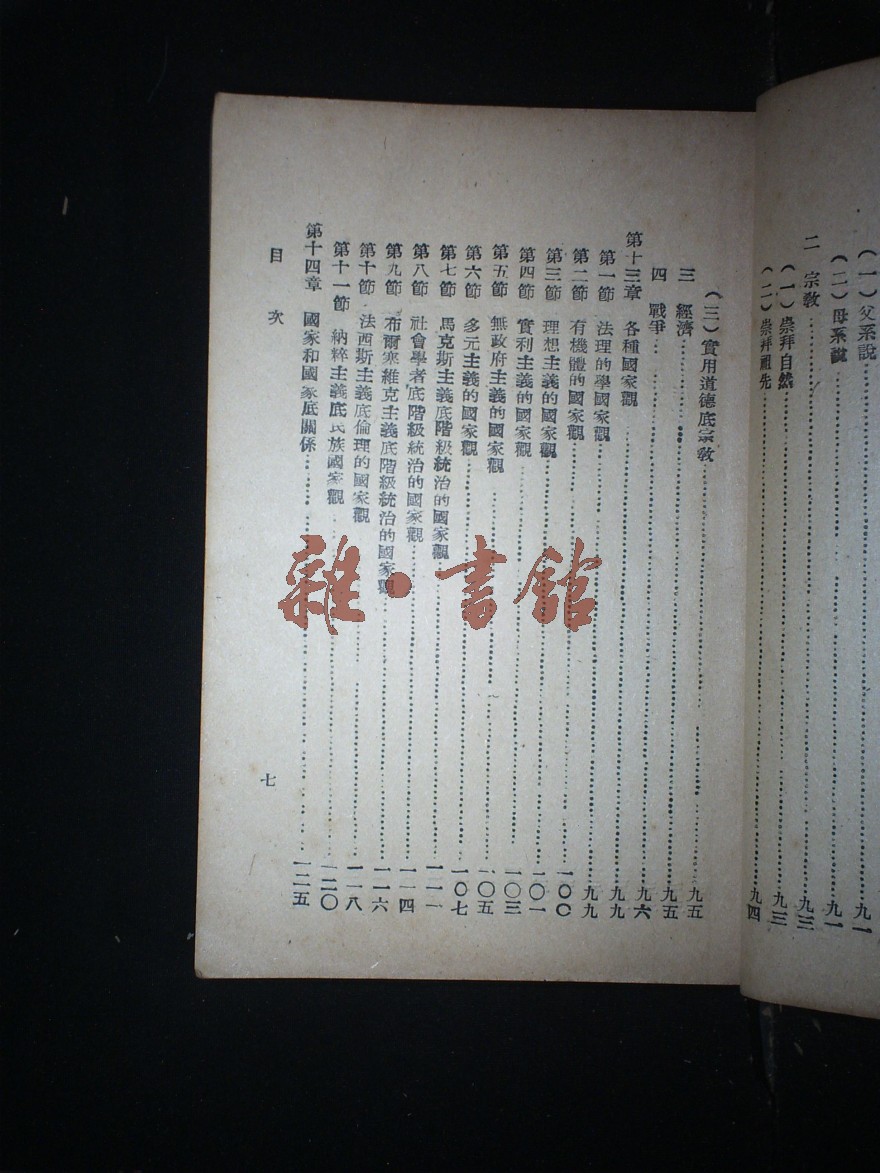 (一)父系說……九一
(二)母系說……九一
二 宗教……九三
(一)崇拜自然……九三
(二)崇拜祖先……九四
(三)實用道德底宗教……九五
三 經濟……九五
四 戰爭……九六
第十三章 各種國家觀……九九
第一節 法理的學國家觀……九九
第二節 有機體的國家觀……一〇〇
第三節 理想主義的國家觀……一〇一
第四節 實利主義的國家觀……一〇三
第五節 無政府主義的國家觀……一〇五
第六節 多元主義的國家觀……一〇七
第七節 馬克斯主義底階級統治的國家觀……一一一
第八節 社會學者底階級統治的國家觀……一一四
第九節 布爾塞維克主義底階級統治的國家觀……一一六
第十節 法西斯主義底倫理的國家觀……一一八
第十一節 納粹主義底民族國家觀……一二〇
第十四章 國家和國家底關係……一二五
目次
七
雜·書館